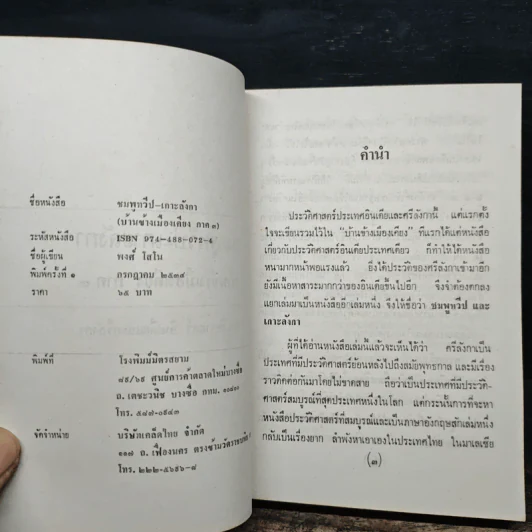 ชื่อหนังสือ ชมพูทวีป-เกาะลังกา
(บ้านข้างเมืองเคียง ภาค ๓)
รหัสหนังสือ ISBN 974-488-072-4
ชื่อผู้เขียน พงศ์ โสโน
พิมพ์ครั้งที่ ๑ กรกฎาคม ๒๕๓๕
ราคา ๖๕ บาท
พิมพ์ที่ โรงพิมพ์มิตรสยาม
๗๕/๖๙ ศูนย์การค้าตลาดใหม่บางซื่อ
ถ. เตชะวนิช บางซื่อ กทม. ๑๐๘๐๐
โทร. ๕๘๗-๐๕๔๓
จัดจำหน่าย บริษัทเคล็ดไทย จำกัด
๑๑๗ ถ. เฟื่องนคร ตรงข้ามวัดราชบพิธ
โทร. ๒๒๒-๕๖๙๖-๘
คำนำ
ประวัติศาสตร์ประเทศอินเดียและศรีลังกานี้ แต่แรกตั้ง
ใจจะเขียนรวมไว้ใน "บ้านข้างเมืองเคียง" ที่แรกแต่หนังสือ
เกี่ยวกับประวัติศาสตร์อินเดียประเทศเดียว ก็ทำให้ได้หนังสือ
หนามากหน้าพอแรงแล้ว ยิ่งได้ประวัติของศรีลังกาเข้ามาอีก
ยังมีเนื้อหาสาระมากกว่าของอินเดียขึ้นไปอีก จึงจำต้องตกลง
แยกเล่มมาเป็นหนังสืออีกเล่มหนึ่ง จึงให้ชื่อว่า ชมพูทวีป และ
เกาะลังกา
ผู้ที่ได้อ่านหนังสือเล่มนี้แล้วจะเห็นได้ว่า ศรีลังกาเป็น
ประเทศที่มีประวัติศาสตร์ย้อนหลังไปถึงสมัยพุทธกาล และมีเรื่อง
ราวติดต่อกันมาโดยไม่ขาดสาย ถือว่าเป็นประเทศที่มีประวัติ-
ศาสตร์สมบูรณ์ที่สุดประเทศหนึ่งในโลก แต่กระนั้นการที่จะหา
หนังสือประวัติศาสตร์ที่สมบูรณ์และเป็นภาษาอังกฤษสักเล่มหนึ่ง
กลับเป็นเรื่องยาก ลำพังหาเอาเองในประเทศไทย ในมาเลเซีย
(๓)